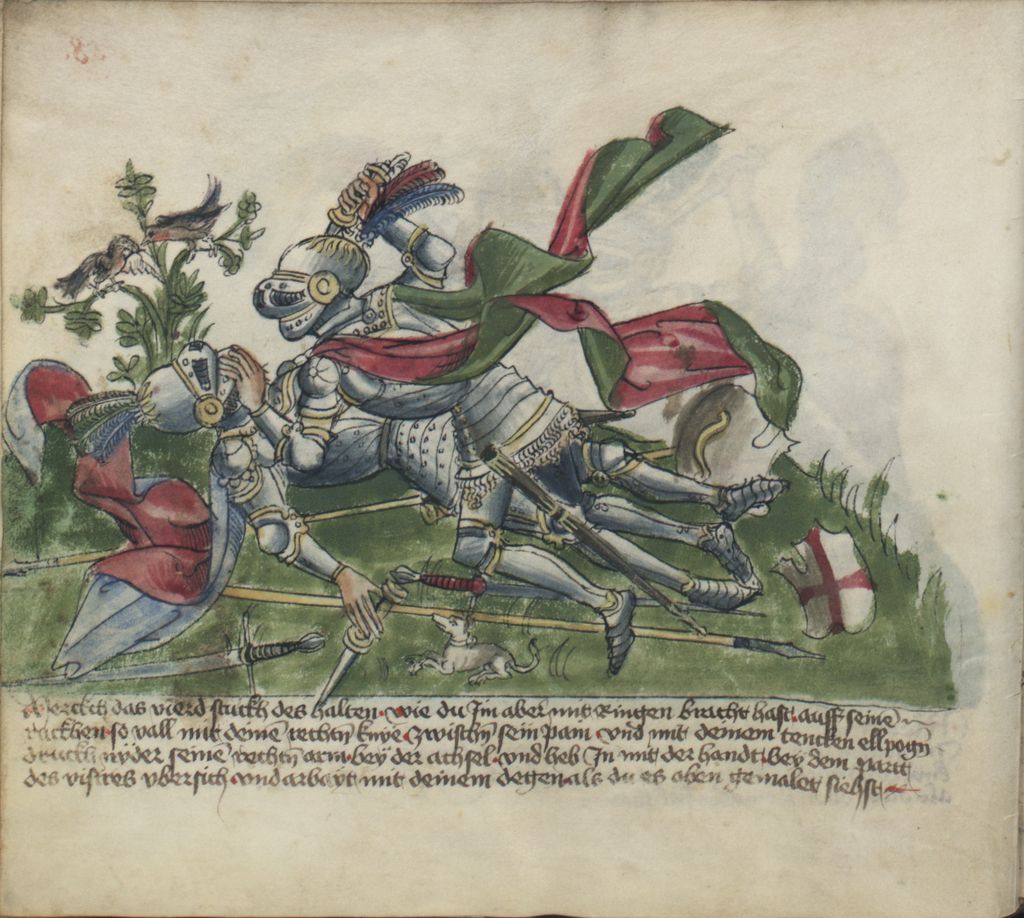 Merckch das vierd stuckh des halten wie du Im aber mit Ringen bracht hast auff seine
ruckhen so vall mit deine rechtn knye Zwischn sein pain vnd mit deinem tencken ellpogn
druckh nyder seine rechtn arm bey der achsel vnd heb In mit der handt bey dem partt
des visires vbersich vnd arbayt mit deinem degen als du es oben gemalet siehst